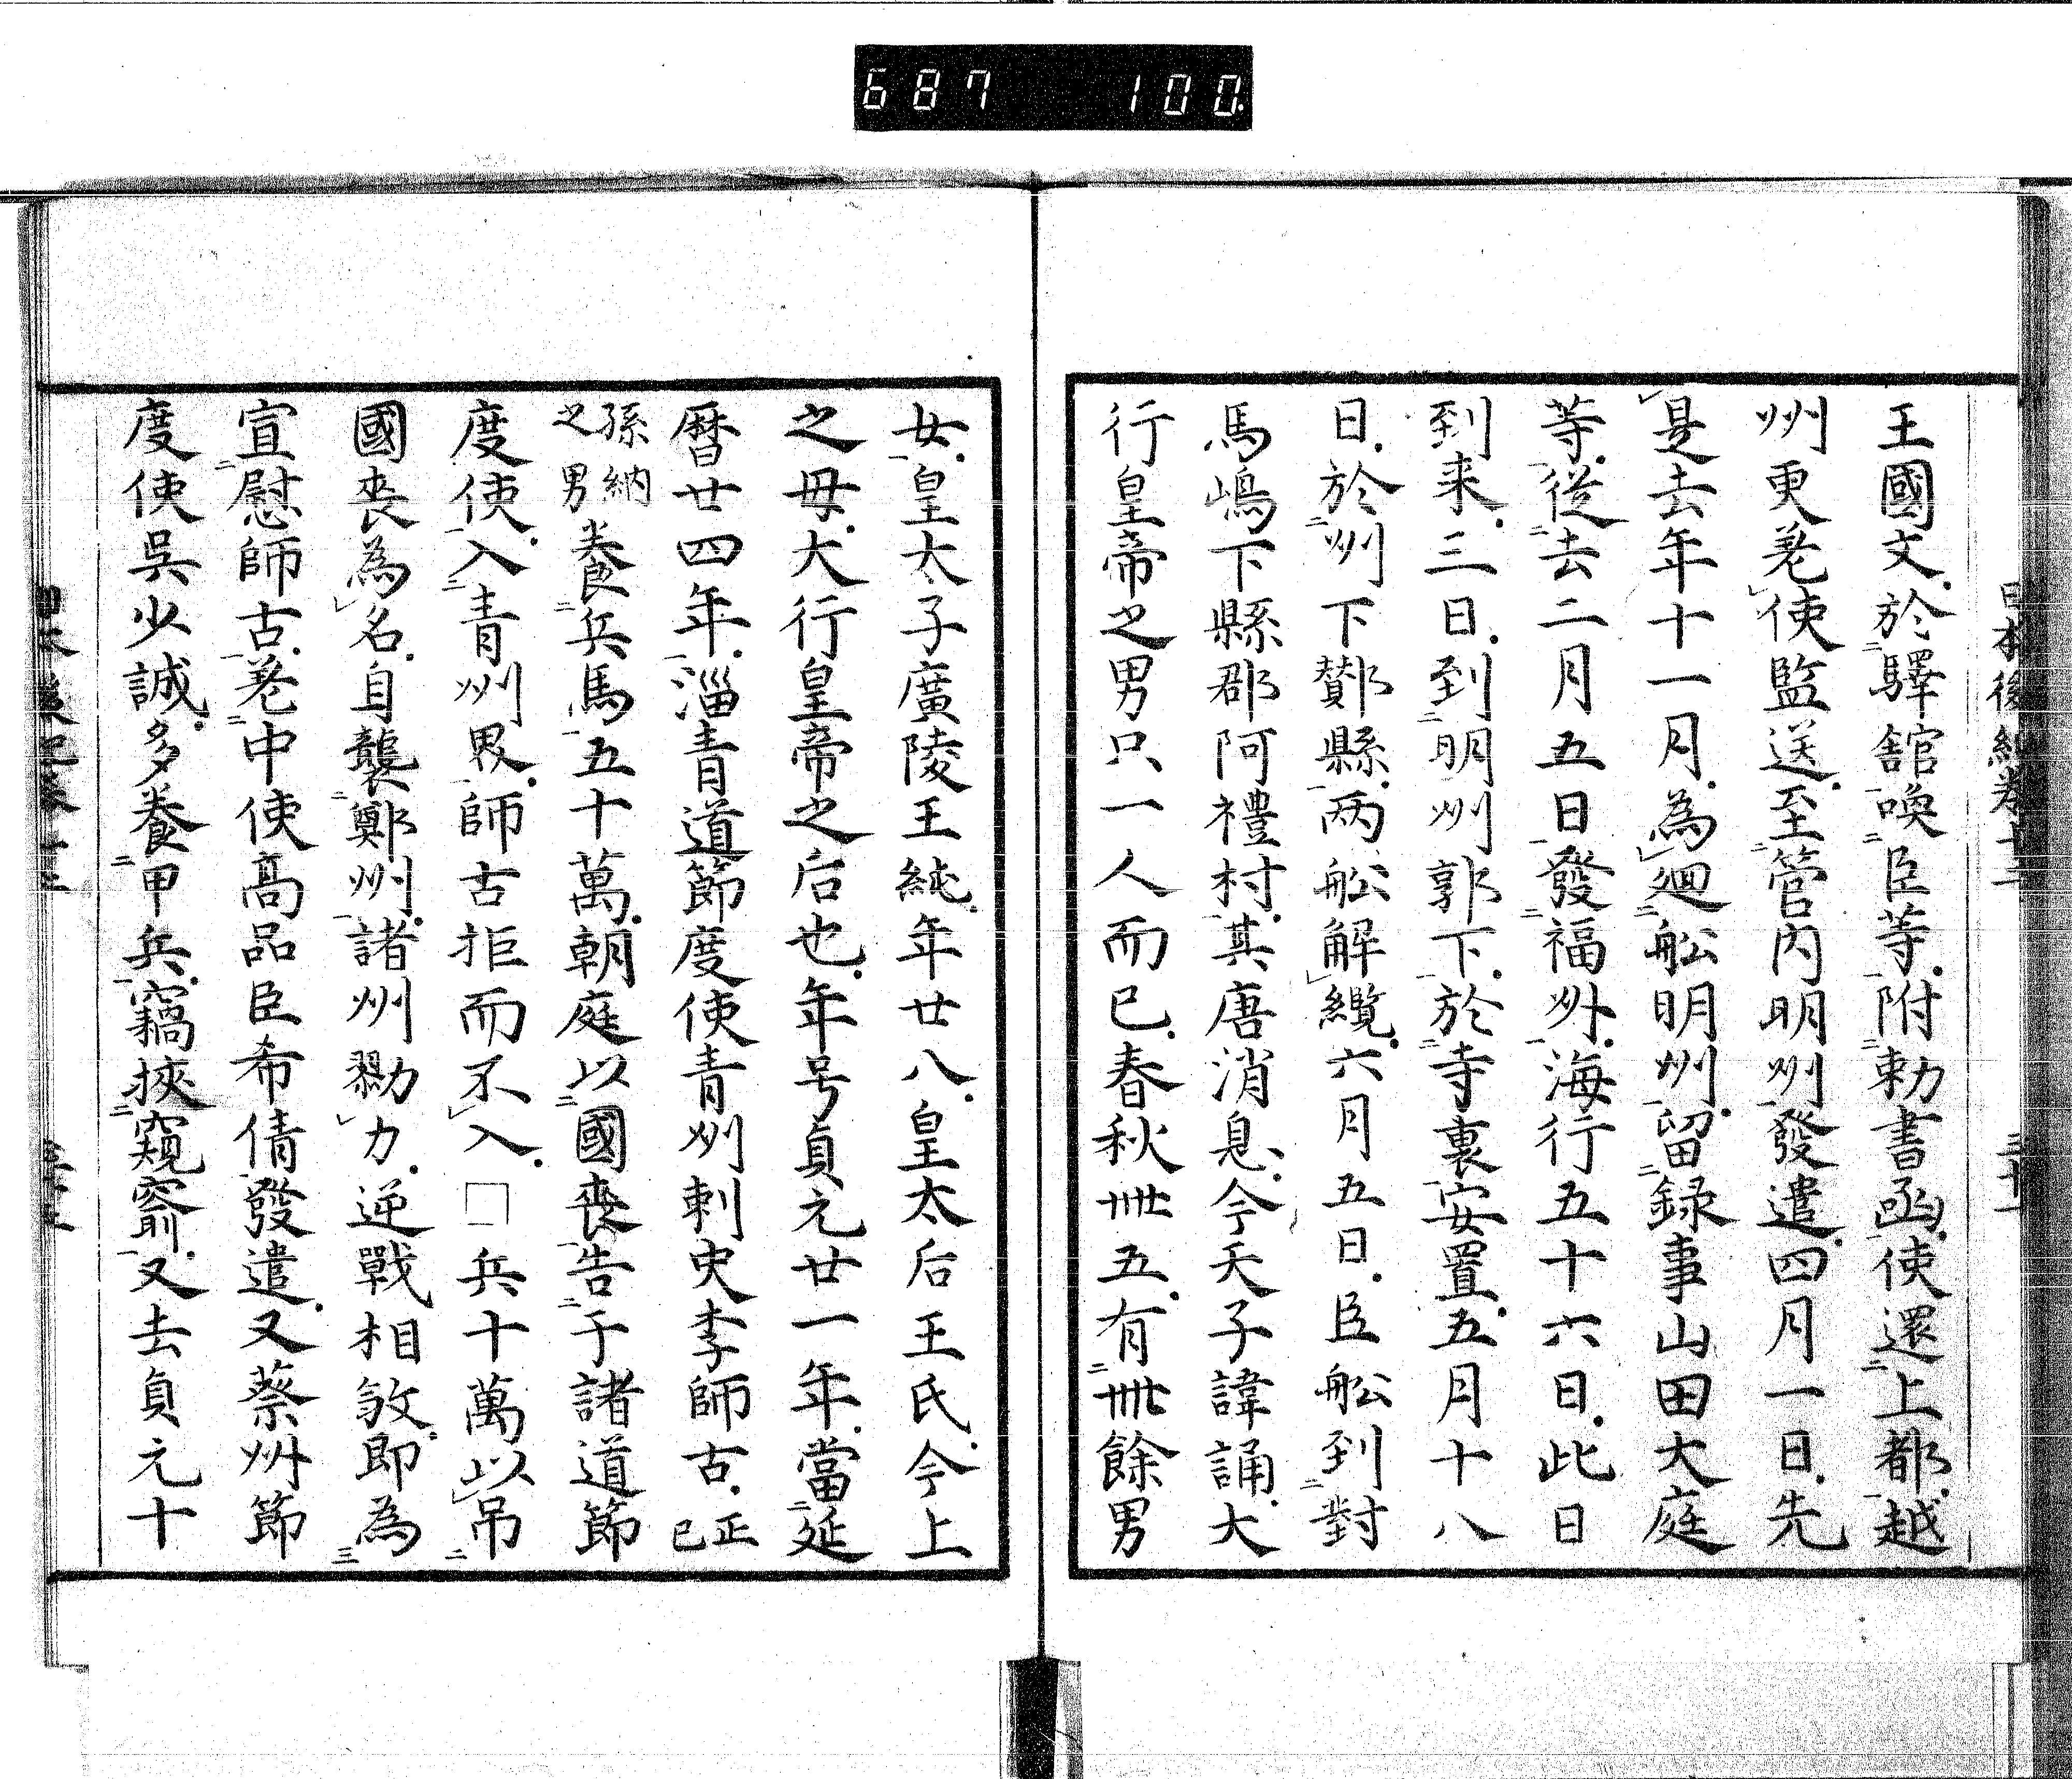 687 100
王國文於驛舘喚臣等附勅書函使還上都越
州更差使監送至管内明州發遣四月一日先
是去年十一月為廻舩明州留録事山田大庭
等從去二月五日發福州海行五十六日此日
到来三日到明州郭下於寺裏安置五月十八
日於州下鄮縣两舩解纜六月五日臣舩到對
馬嶋下縣郡阿禮村其唐消息今天子諱誦大
行皇帝之男只一人而已春秋卌五有卌餘男
女皇太子廣陵王純年廿八皇太后王氏今上
之母大行皇帝之后也年号貞元廿一年當延
曆廿四年淄青道節度使青州刺史李師古正已
孫納之男養兵馬五十萬朝庭以國喪告于諸道節
度使入青州界師古拒而不入□兵十萬以吊
國喪為名自襲鄭州諸州勠力逆戰相敓即為
宣慰師古差中使高品臣希倩發遣又蔡州節
度使吳少誠多養甲兵竊挾窺窬又去貞元十